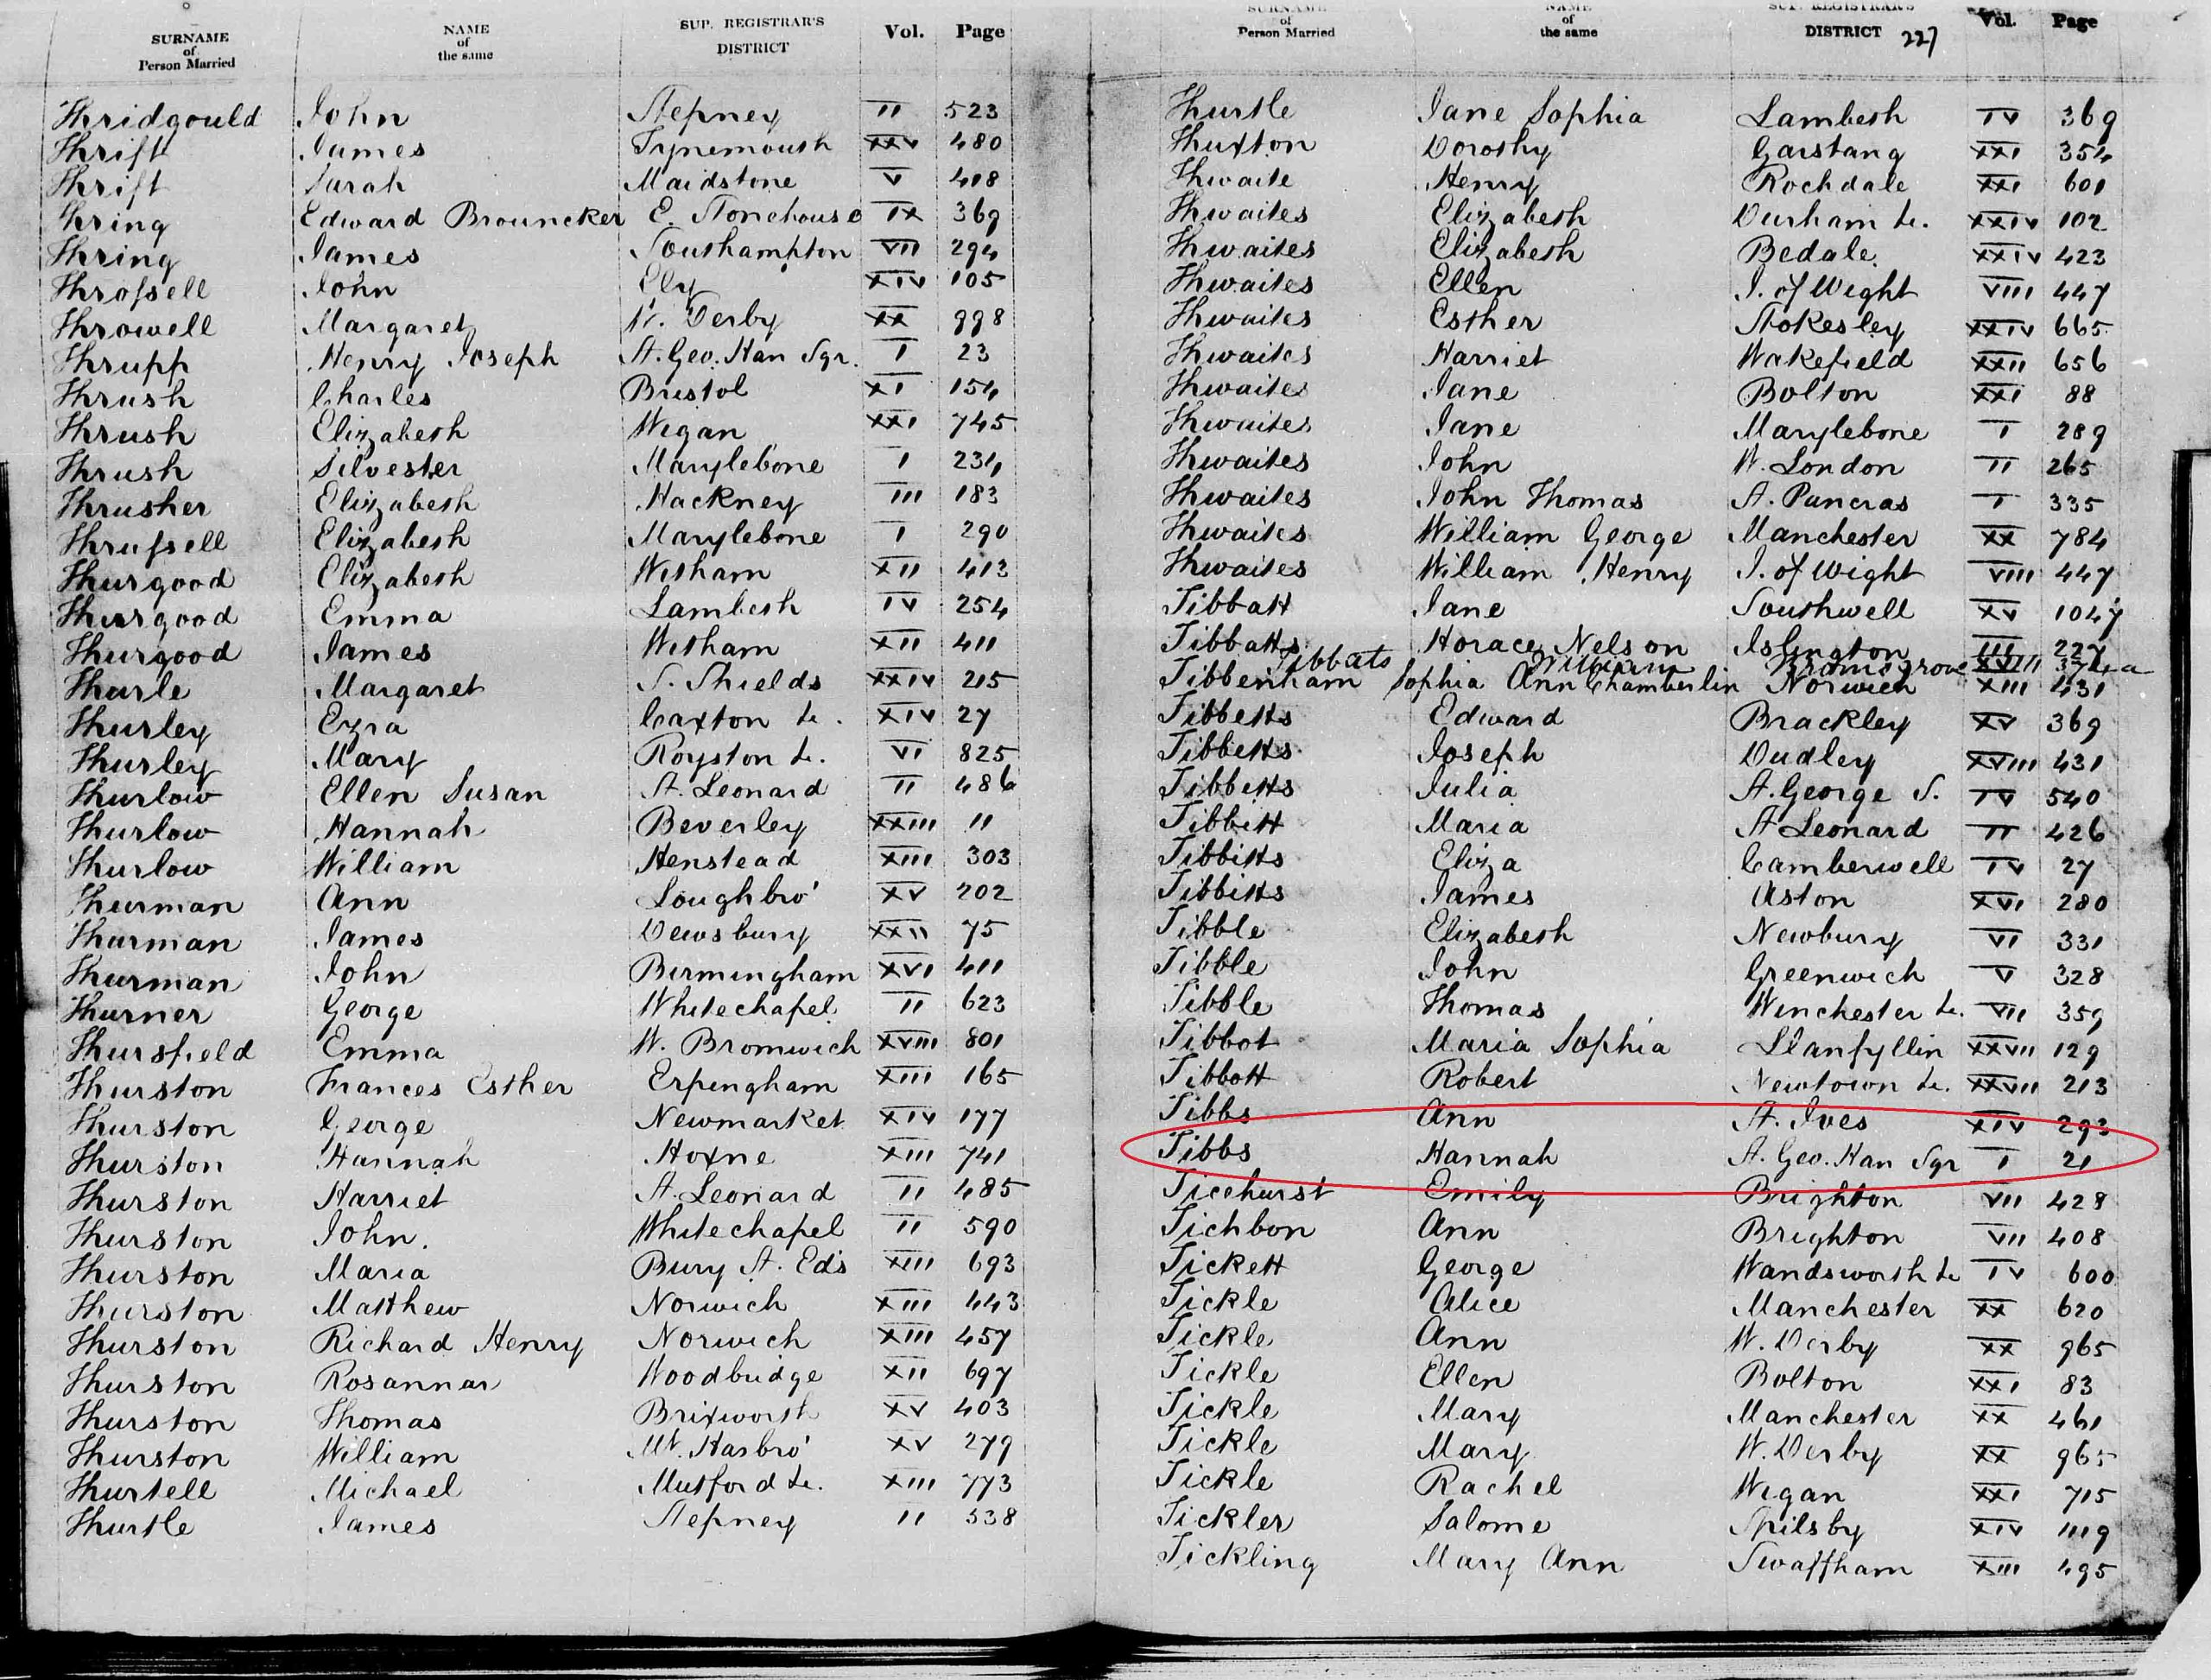 SURNAME of Person Married NAME of the same SUP. REGISTRAR'S DISTRICT Vol. Page
Thridgould John Stepney II 523
Thrift James Tynemouth XXV 480
Thrift Sarah Maidstone V 408
Thring Edward Brouncker E. Stonehouse IX 369
Thring James Southampton VII 294
Throssell John Ely XIV 105
Throwell Margaret W. Derby XX 998
Thrupp Henry Joseph St. Geo. Han Sqr. I 23
Thrush Charles Bristol XI 154
Thrush Elizabeth Wigan XXI 745
Thrush Silvester Marylebone I 234
Thrusher Elizabeth Hackney III 183
Thrussell Elizabeth Marylebone I 290
Thurgood Elizabeth Witham XII 413
Thurgood Emma Lambeth IV 254
Thurgood James Witham XII 411
Thurle Margaret S. Shields XXIV 215
Thurley Ezra Caxton &c. XIV 27
Thurley Mary Royston &c. VI 825
Thurlow Ellen Susan St. Leonard II 486
Thurlow Hannah Beverley XXIII 11
Thurlow William Henstead XIII 303
Thurman Ann Loughbro' XV 202
Thurman James Dewsbury XXII 75
Thurman John Birmingham XVI 411
Thurner George Whitechapel II 623
Thursfield Emma W. Bromwich XVIII 801
Thurston Frances Esther Erpingham XIII 165
Thurston George Newmarket XIV 177
Thurston Hannah Hoxne XIII 741
Thurston Harriet St. Leonard II 485
Thurston John. Whitechapel II 590
Thurston Maria Bury St. Ed's XIII 693
Thurston Matthew Norwich XIII 443
Thurston Richard Henry Norwich XIII 457
Thurston Rosannah Woodbridge XII 697
Thurston Thomas Brixworth XV 403
Thurston William Mt. Harbro' XV 279
Thurtell Michael Mutford &c. XIII 773
Thurtle James Stepney II 538
SURNAME of Person Married NAME of the same SUP. REGISTRAR'S DISTRICT 227 Vol. Page
Thurtle Jane Sophia Lambeth IV 369
Thuxton Dorothy Garstang XXI 354
Thwaite Henry Rochdale XXI 601
Thwaites Elizabeth Durham &c. XXIV 102
Thwaites Elizabeth Bedale XXIV 423
Thwaites Ellen I. of Wight VIII 447
Thwaites Esther Stokesley XXIV 665
Thwaites Harriet Wakefield XXII 656
Thwaites Jane Bolton XXI 88
Thwaites Jane Marylebone I 289
Thwaites John W. London II 265
Thwaites John Thomas St. Pancras I 335
Thwaites William George Manchester XX 784
Thwaites William Henry I. of Wight VIII 447
Tibbatt Jane Southwell XV 1047
Tibbatts Horace Nelson Islington III 227
Tibbats William Bromsgrove XVIII
Tibbenham Sophia Ann Chamberlin Norwich XIII 431
Tibbetts Edward Brackley XV 369
Tibbetts Joseph Dudley XVIII 431
Tibbetts Julia St. George S. IV 540
Tibbitt Maria St Leonard II 426
Tibbitts Eliza Camberwell IV 27
Tibbitts James Aston XVI 280
Tibble Elizabeth Newbury VI 331
Tibble John Greenwich V 328
Tibble Thomas Winchester &c. VII 359
Tibbot Maria Sophia Llanfyllin XXVII 129
Tibbott Robert Newtown &c. XXVII 213
Tibbs Ann St. Ives XIV 293
Tibbs Hannah St. Geo. Han Sqr I 21
Ticehurst Emily Brighton VII 428
Tichbon Ann Brighton VII 408
Tickett George Wandsworth &c IV 600
Tickle Alice Manchester XX 620
Tickle Ann W. Derby XX 965
Tickle Ellen Bolton XXI 83
Tickle Mary Manchester XX 461
Tickle Mary W. Derby XX 965
Tickle Rachel Wigan XXI 715
Tickler Salome Spilsby XIV 1119
Tickling Mary Ann Swaffham XIII 495